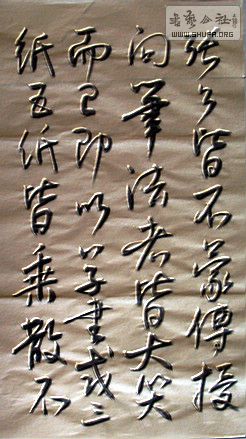 书艺公社
WWW.SHUFA.ORG
张公皆不蒙傳授
问筆法者皆大笑
而已即以草書或三
纸五纸皆乘散不